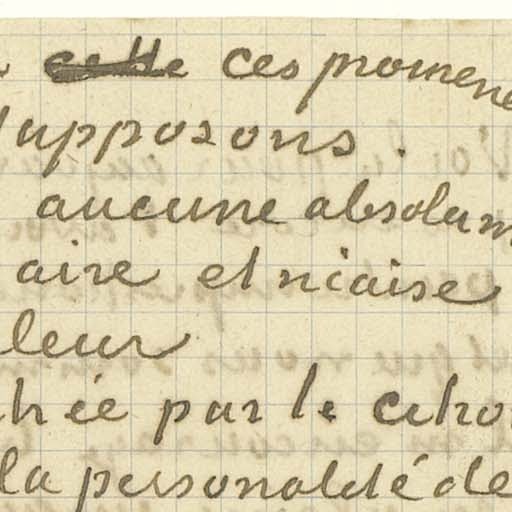 cette ces promene
supposons.
aucune absolum
aire et niaise
leur
hée par le cho
la personalité de